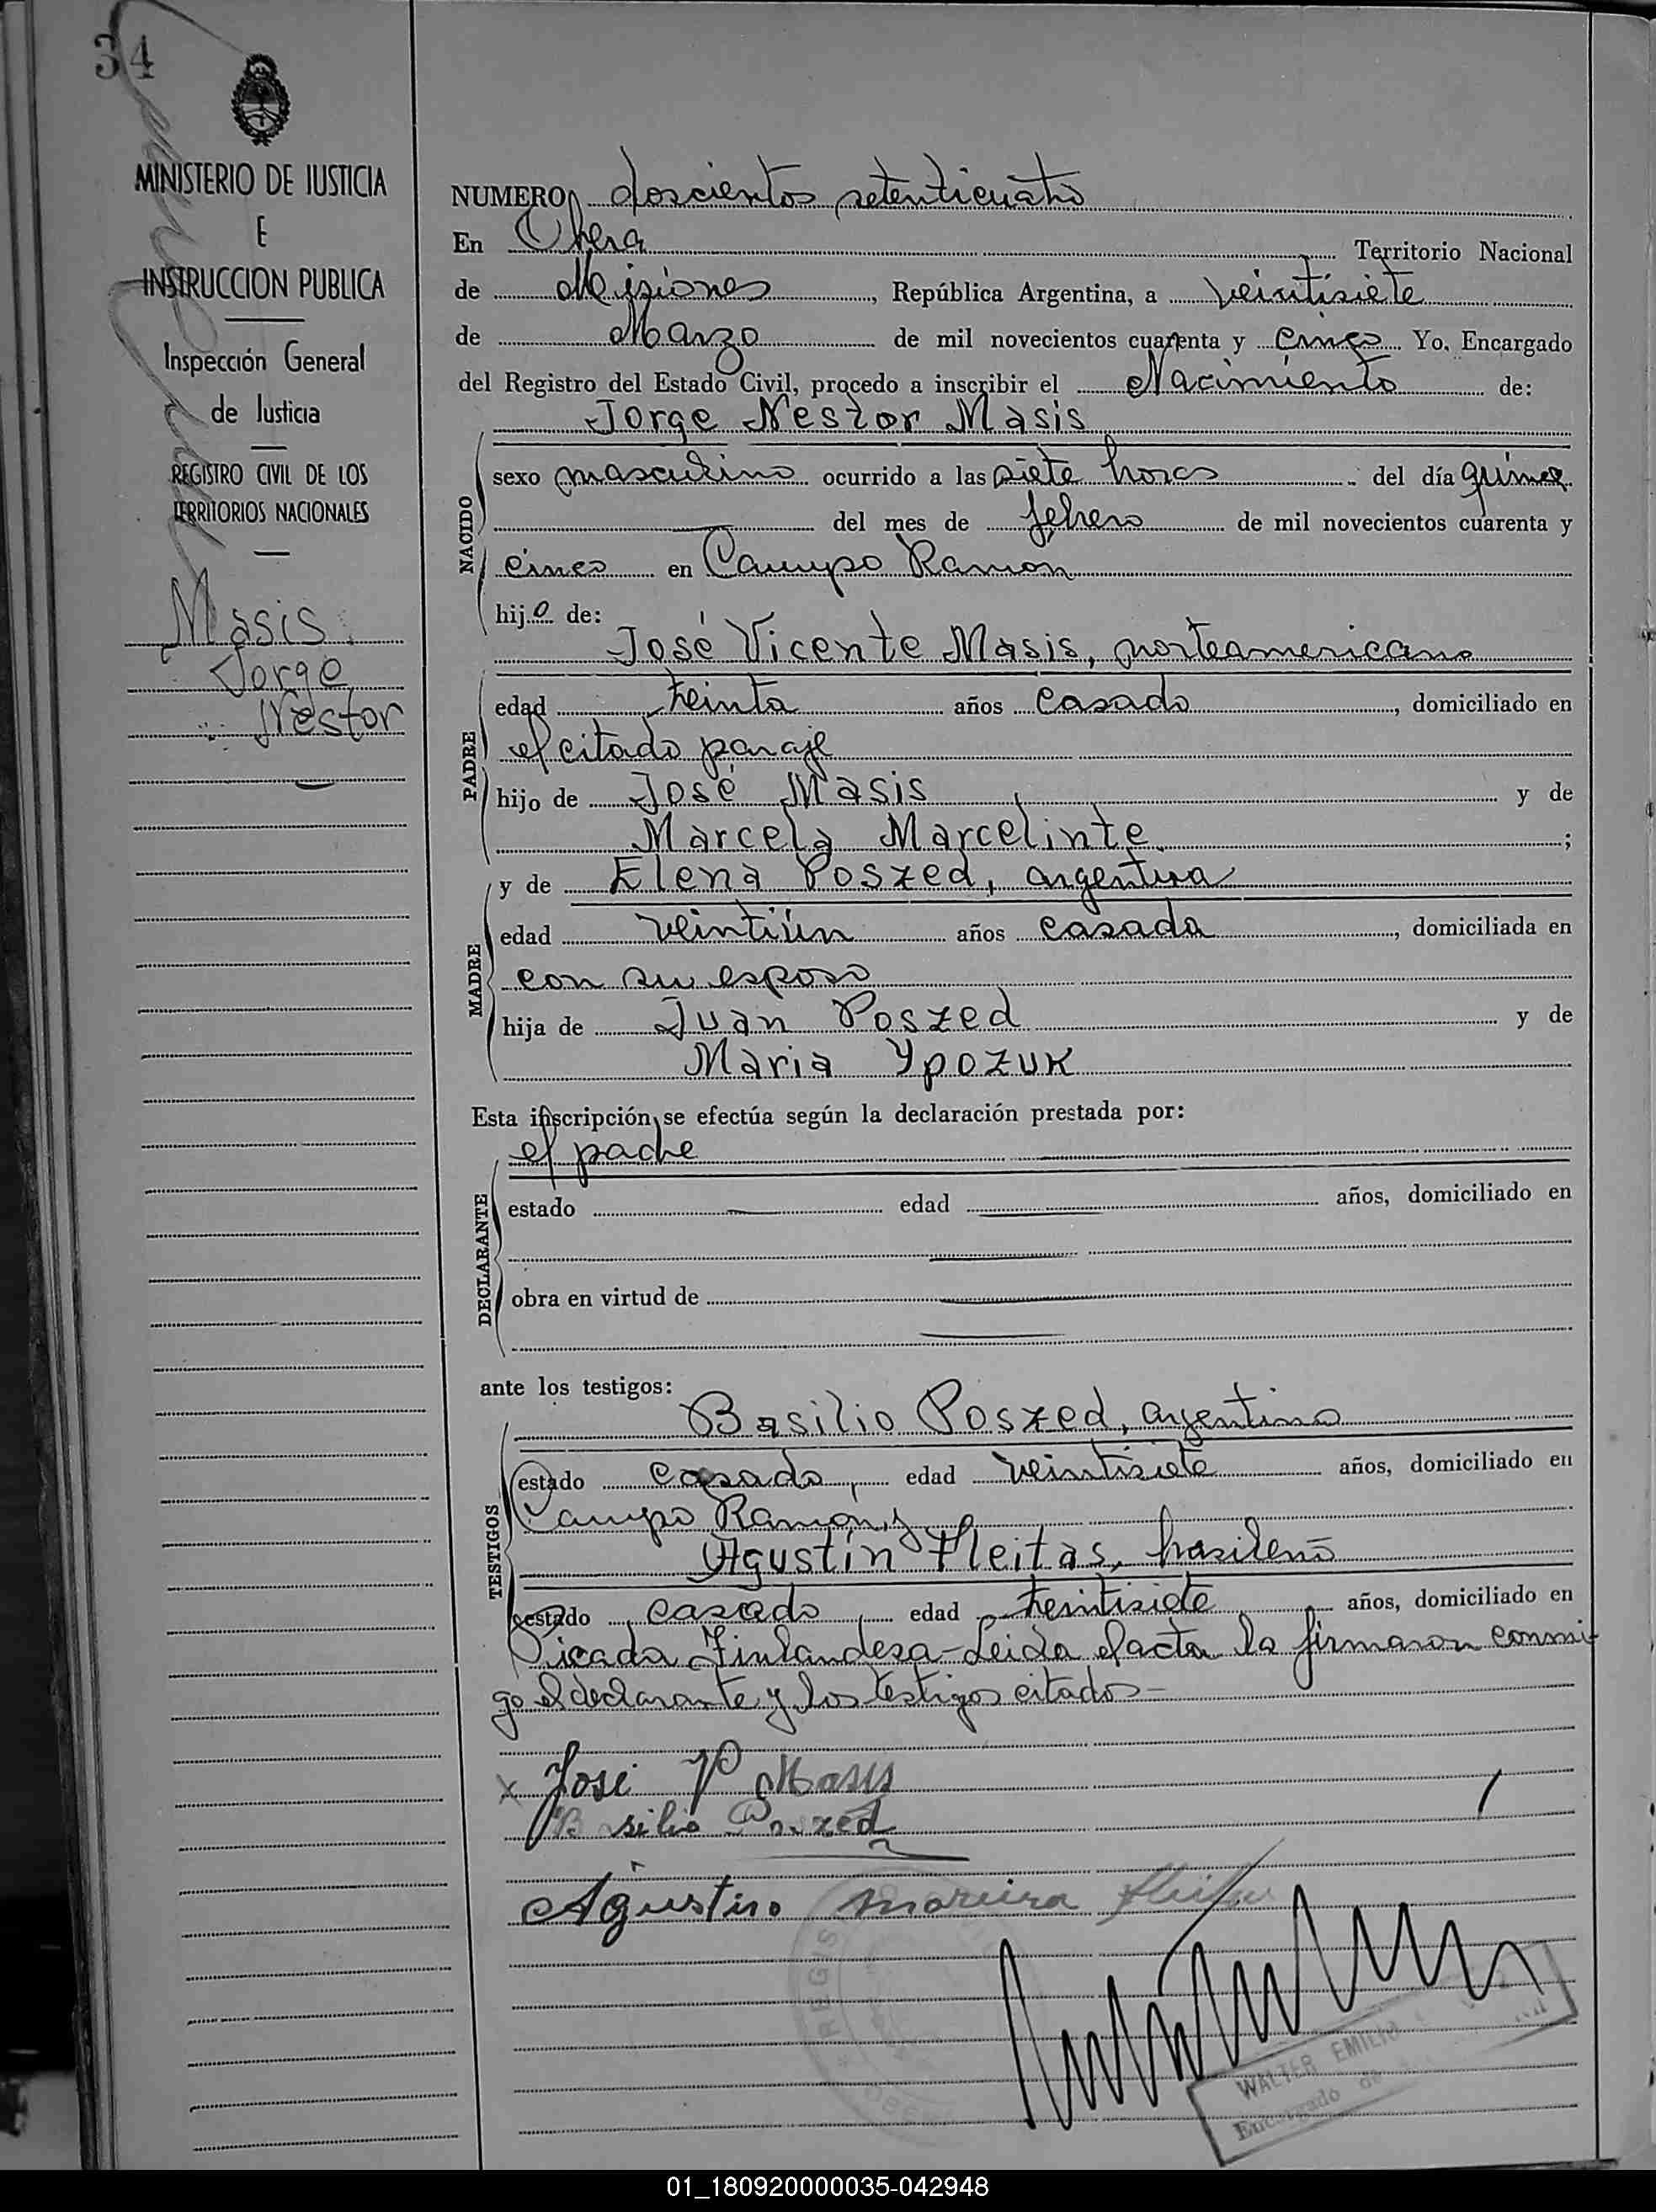 34
MINISTERIO DE JUSTICIA
E
INSTRUCCION PUBLICA
Inspección General
de Justicia
REGISTRO CIVIL DE LOS
TERRITORIOS NACIONALES
Masis
Jorge
Nestor
NUMERO doscientos setenticuatro
En Obera Territorio Nacional
de Misiones, República Argentina, a veintisiete
de Marzo de mil novecientos cuarenta y cinco Yo, Encargado
del Registro del Estado Civil, procedo a inscribir el Nacimiento de:
Jorge Nestor Masis
NACIDO
sexo masculino ocurrido a las siete horas del día quince
del mes de febrero de mil novecientos cuarenta y
cinco en Campo Ramon
hijo de:
José Vicente Masis, norteamericano
PADRE
edad treinta años casado, domiciliado en
el citado paraje
hijo de José Masis y de
Marcela Marcelinte;
MADRE
y de Elena Poszed, argentina
edad veintiún años casada, domiciliada en
con su esposo
hija de Juan Poszed y de
Maria Ypozuk
Esta inscripción se efectúa según la declaración prestada por:
el padre
DECLARANTE
estado edad años, domiciliado en
obra en virtud de
ante los testigos:
Basilio Poszed, argentino
TESTIGOS
estado casado, edad veintisiete años, domiciliado en
Campo Ramón, y
Agustín Fleitas, brasileño
estado casado, edad treintisiete, años, domiciliado en
Picada Finlandesa - Leida el acta la firmaron conmi
go el declarante y los testigos citados -
x José V Masis
Basilio Poszed
Agustino Moreira
REGIS
OBE
WALTER EMILIO
Encargado de
01_180920000035-042948